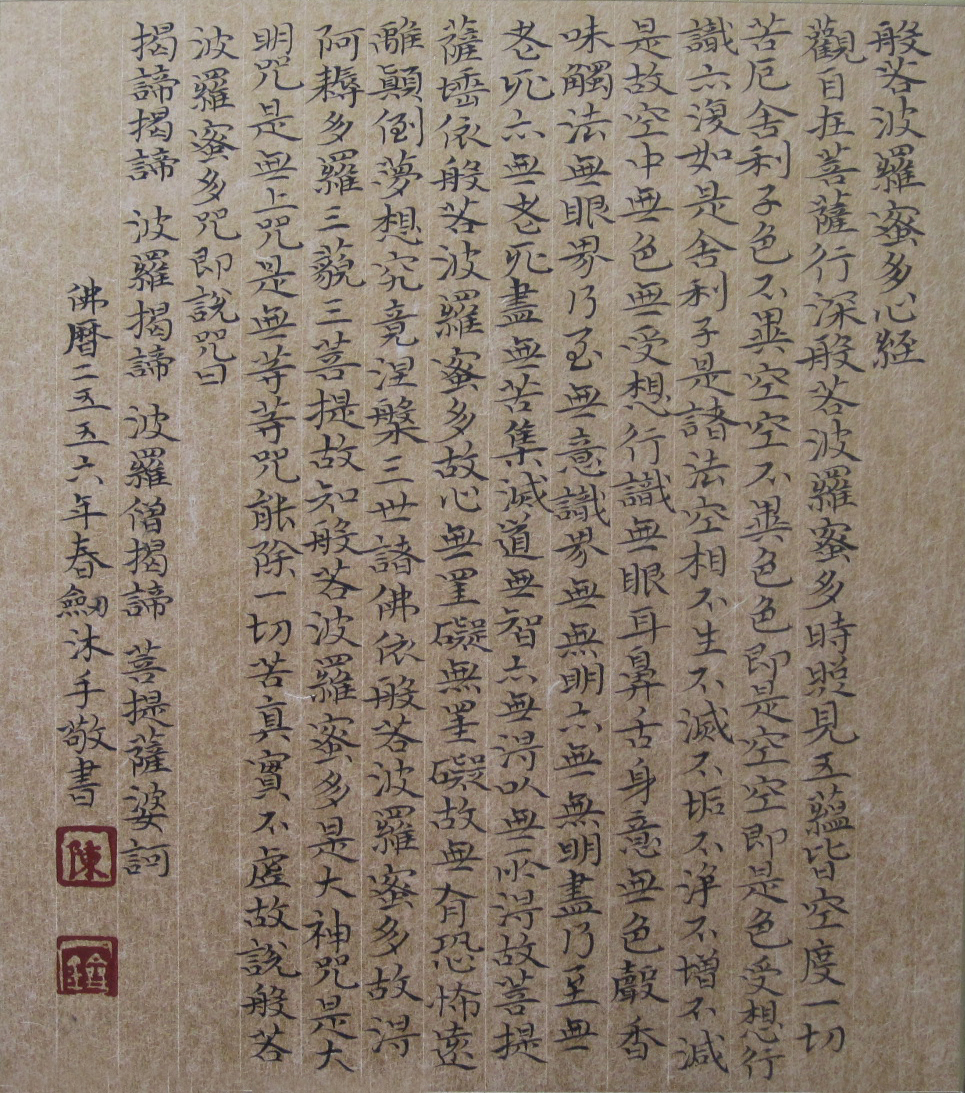 般若波羅蜜多心経
觀自在菩薩行深般若波羅蜜多時照見五蘊皆空度一切
苦厄舍利子色不異空空不異色色即是空空即是色受想行
識亦復如是舍利子是諸法空相不生不滅不垢不淨不增不減
是故空中無色無受想行識無眼耳鼻舌身意無色聲香
味觸法無眼界乃至無意識界無無明亦無無明盡乃至無
老死亦無老死盡無苦集滅道無智亦無得以無所得故菩提
薩埵依般若波羅蜜多故心無罣礙無罣礙故無有恐怖遠
離顛倒夢想究竟涅槃三世諸佛依般若波羅蜜多故得
阿耨多羅三藐三菩提故知般若波羅蜜多是大神咒是大
明咒是無上咒是無等等咒能除一切苦真實不虛故說般若
波羅蜜多咒即說咒曰
揭諦揭諦 波羅揭諦 波羅僧揭諦 菩提薩婆訶
佛曆二五五六年春劍沐手敬書
陳